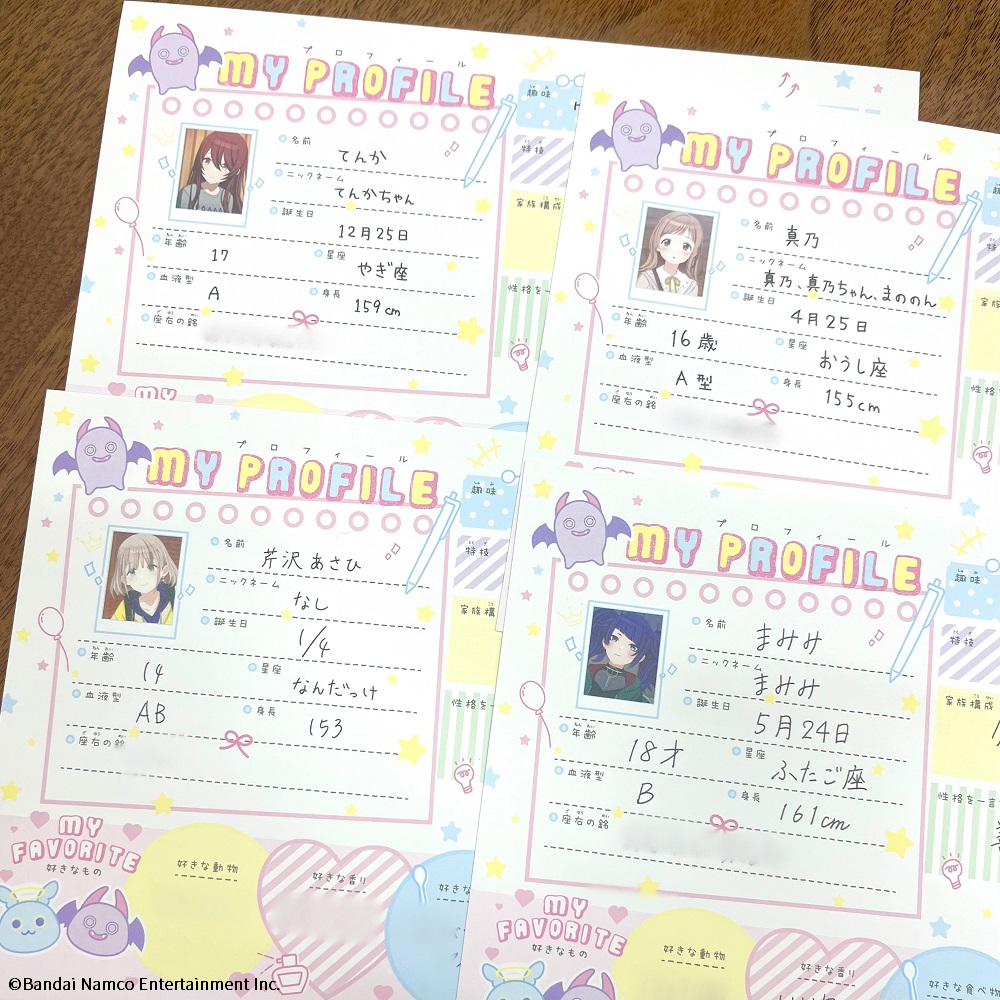 プロフィール
MY PROFILE
名前
てんか
ニックネーム
てんかちゃん
誕生日
12月25日
年齢
ねんれい
17
星座
やぎ座
血液型
A
身長
159cm
座右の銘
ざゆう めい
趣味
しゅみ
特技
とくぎ
家族構成
性格を一
MY
プロフィール
MY PROFILE
名前
真乃
ニックネーム
真乃、真乃ちゃん、まののん
誕生日
4月25日
年齢
ねんれい
16歳
星座
おうし座
血液型
A型
身長
155cm
座右の銘
家族
性格
プロフィール
MY PROFILE
名前
芹沢あさひ
ニックネーム
なし
誕生日
1/4
年齢
ねんれい
14
星座
なんだっけ
血液型
AB
身長
153
座右の銘
趣味
しゅみ
特技
とくぎ
家族構
性格を
MY
FAVORITE
好きなもの
好きな動物
好きな香り
好きな
プロフィール
MY PROFILE
名前
まみみ
ニックネーム
まみみ
誕生日
5月24日
年齢
ねんれい
18才
星座
ふたご座
血液型
B
身長
161cm
座右の銘
趣味
しゅみ
特技
とくぎ
家族構成
性格を一言
MY
FAVORITE
好きなもの
好きな動物
好きな香り
好きな食べ物
©Bandai Namco Entertainment Inc.